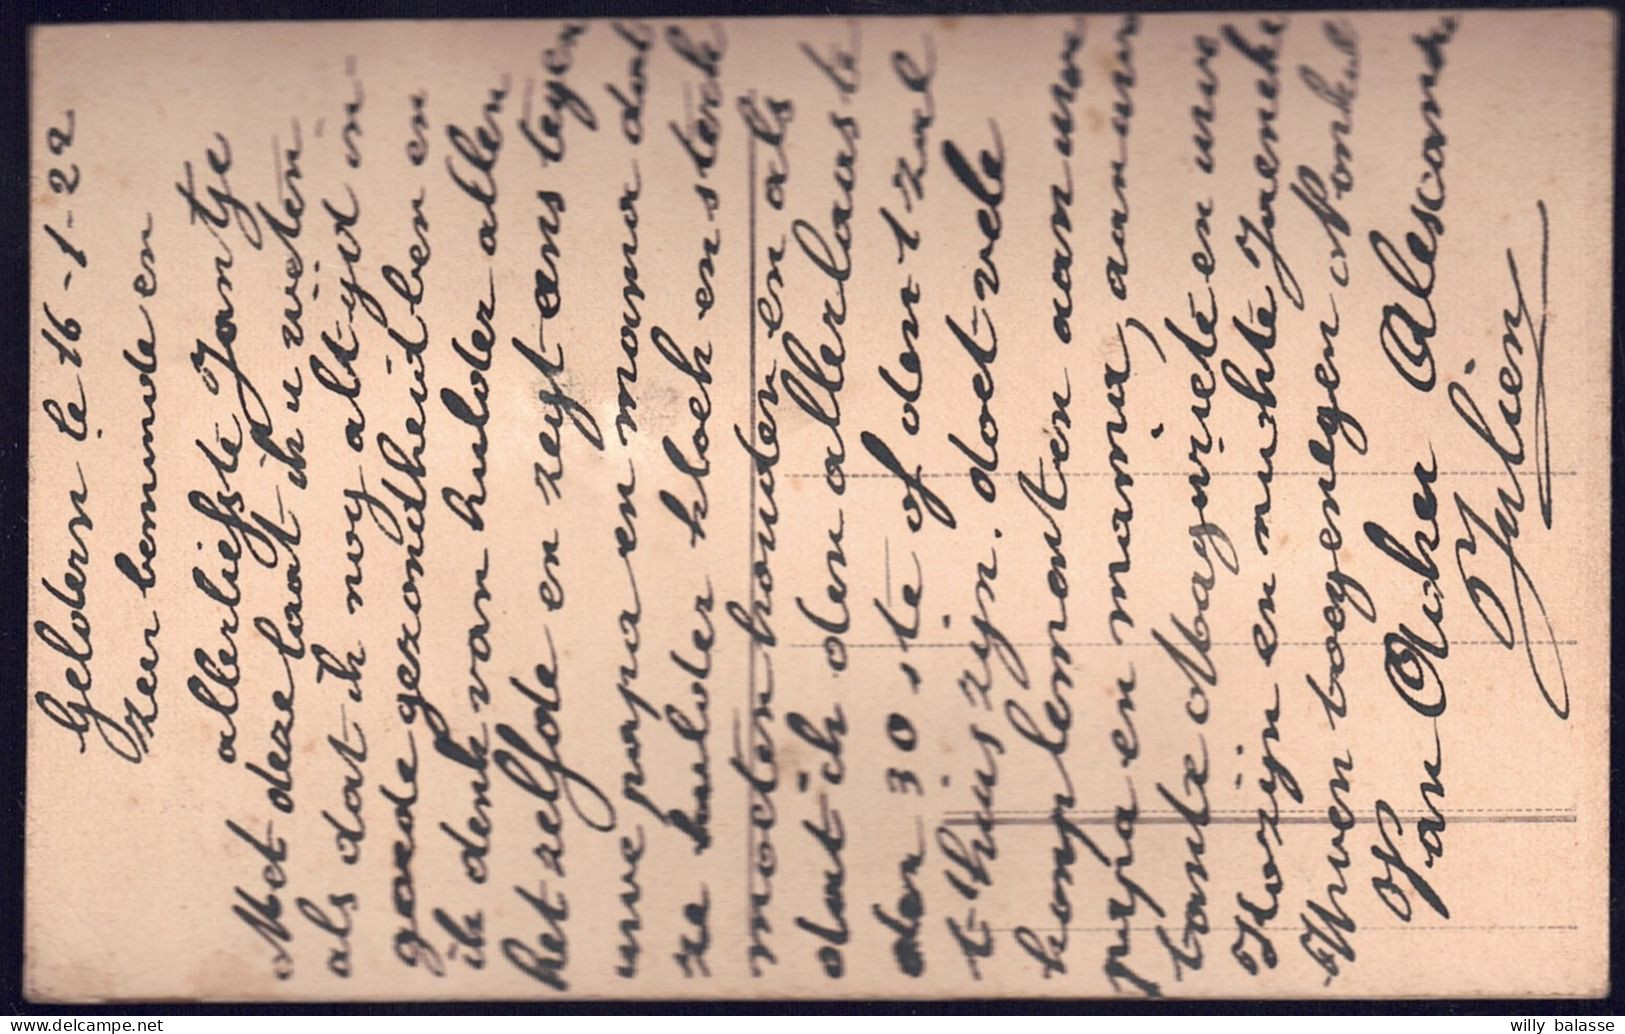 Geldern le 16-1-22
zeer beminde en
allerliefste Jantje
Met deze laat ik u weten
als dat ik nog altijt in
goede gezontheid ben en
ik denk van hulder allen
het zelfde en zegt ons tegen
uwe papa en mama dat
ze hulder kloek en sterk
moeten houden als
dat ik den allerlaaste
der 30 ste of den 1 zal
thuis zijn. doet vele
komplementen aan uw
papa en mama, aan uw
tante Magriete en uw
Kozijn en nichte
Uwen toegenegen Nonkel
Van
Julien
willy balasse